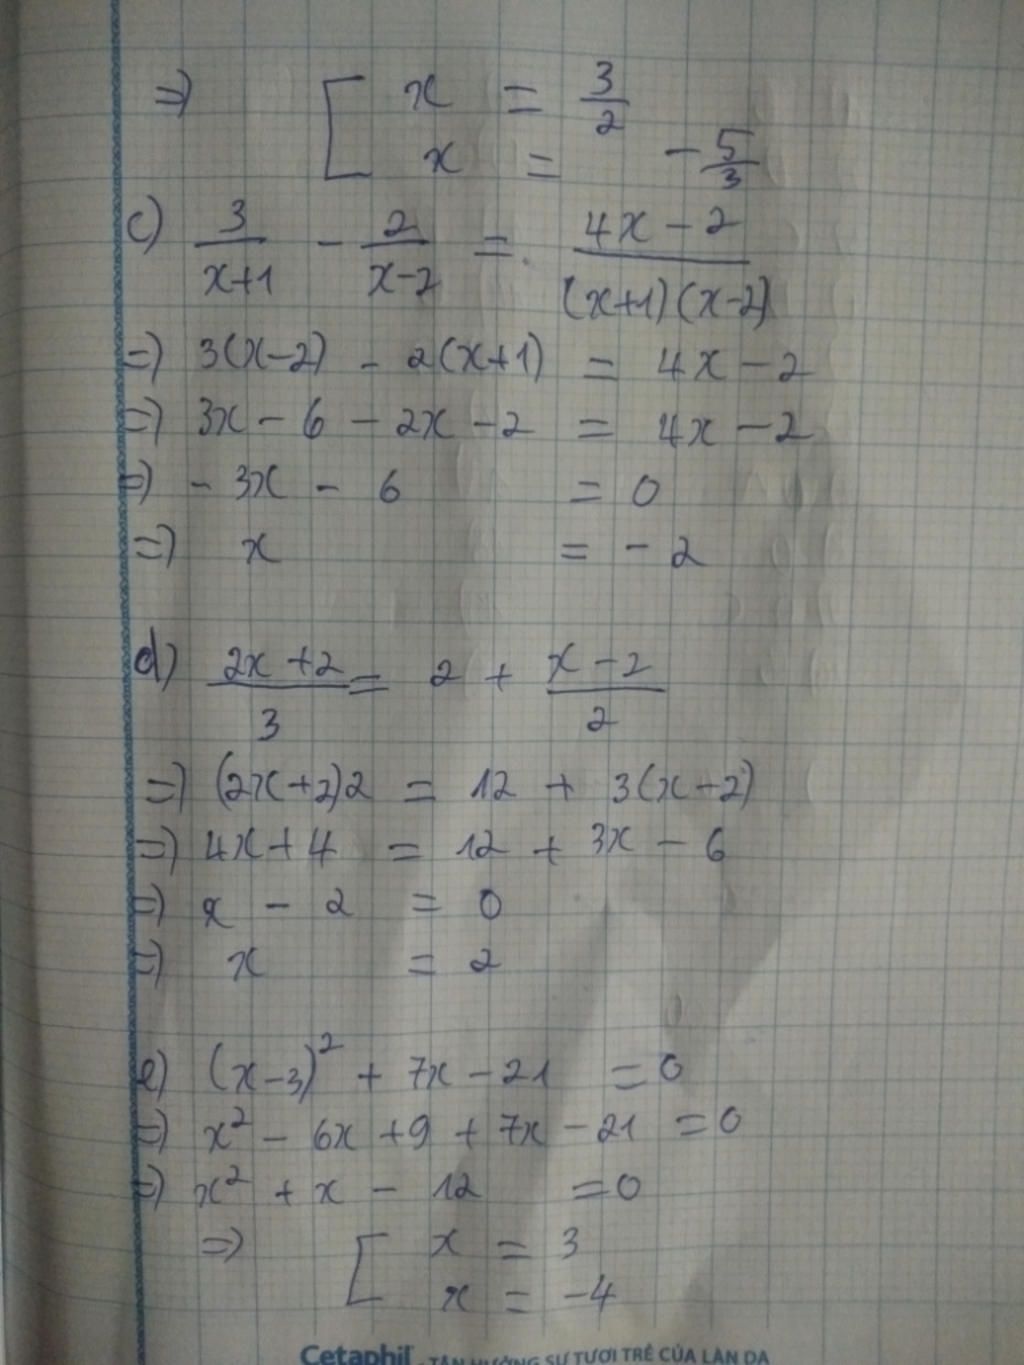 ⇒ [ x = 3/2
x = -5/3
c) 3/(x+1) - 2/(x-2) = (4x-2)/((x+1)(x-2))
⇒ 3(x-2) - 2(x+1) = 4x-2
⇒ 3x - 6 - 2x - 2 = 4x - 2
⇒ - 3x - 6 = 0
⇒ x = - 2
d) (2x+2)/3 = 2 + (x-2)/2
⇒ (2x+2)2 = 12 + 3(x-2)
⇒ 4x+4 = 12 + 3x - 6
⇒ x - 2 = 0
⇒ x = 2
e) (x-3)² + 7x - 21 = 0
⇒ x² - 6x + 9 + 7x - 21 = 0
⇒ x² + x - 12 = 0
⇒ [ x = 3
x = -4
Cetaphil - TẬN HƯỞNG SỰ TƯƠI TRẺ CỦA LÀN DA